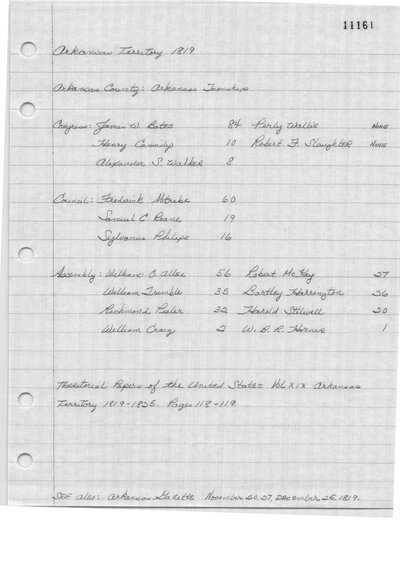 11161
Arkansas Territory 1819
Arkansas County: Arkansas Township
Congress: James W. Bates 84 Perly Wallis None
Henry Cassidy 10 Robert F. Slaughter None
Alexander S. Walker 8
Council: Frederick Notribe 60
Samuel C Roane 19
Sylvanus Philips 16
Assembly: William O. Allen 56 Robert McKay 27
William Trimble 35 Bartley Harrington 26
Richmond Peeler 32 Harold Stilwell 20
William Craig 2 W. B. R. Horner 1
Territorial Papers of the United States Vol XIX Arkansas
Territory 1819-1825. Pages 118-119.
SEE also: Arkansas Gazette November 20, 27, December 25, 1819.